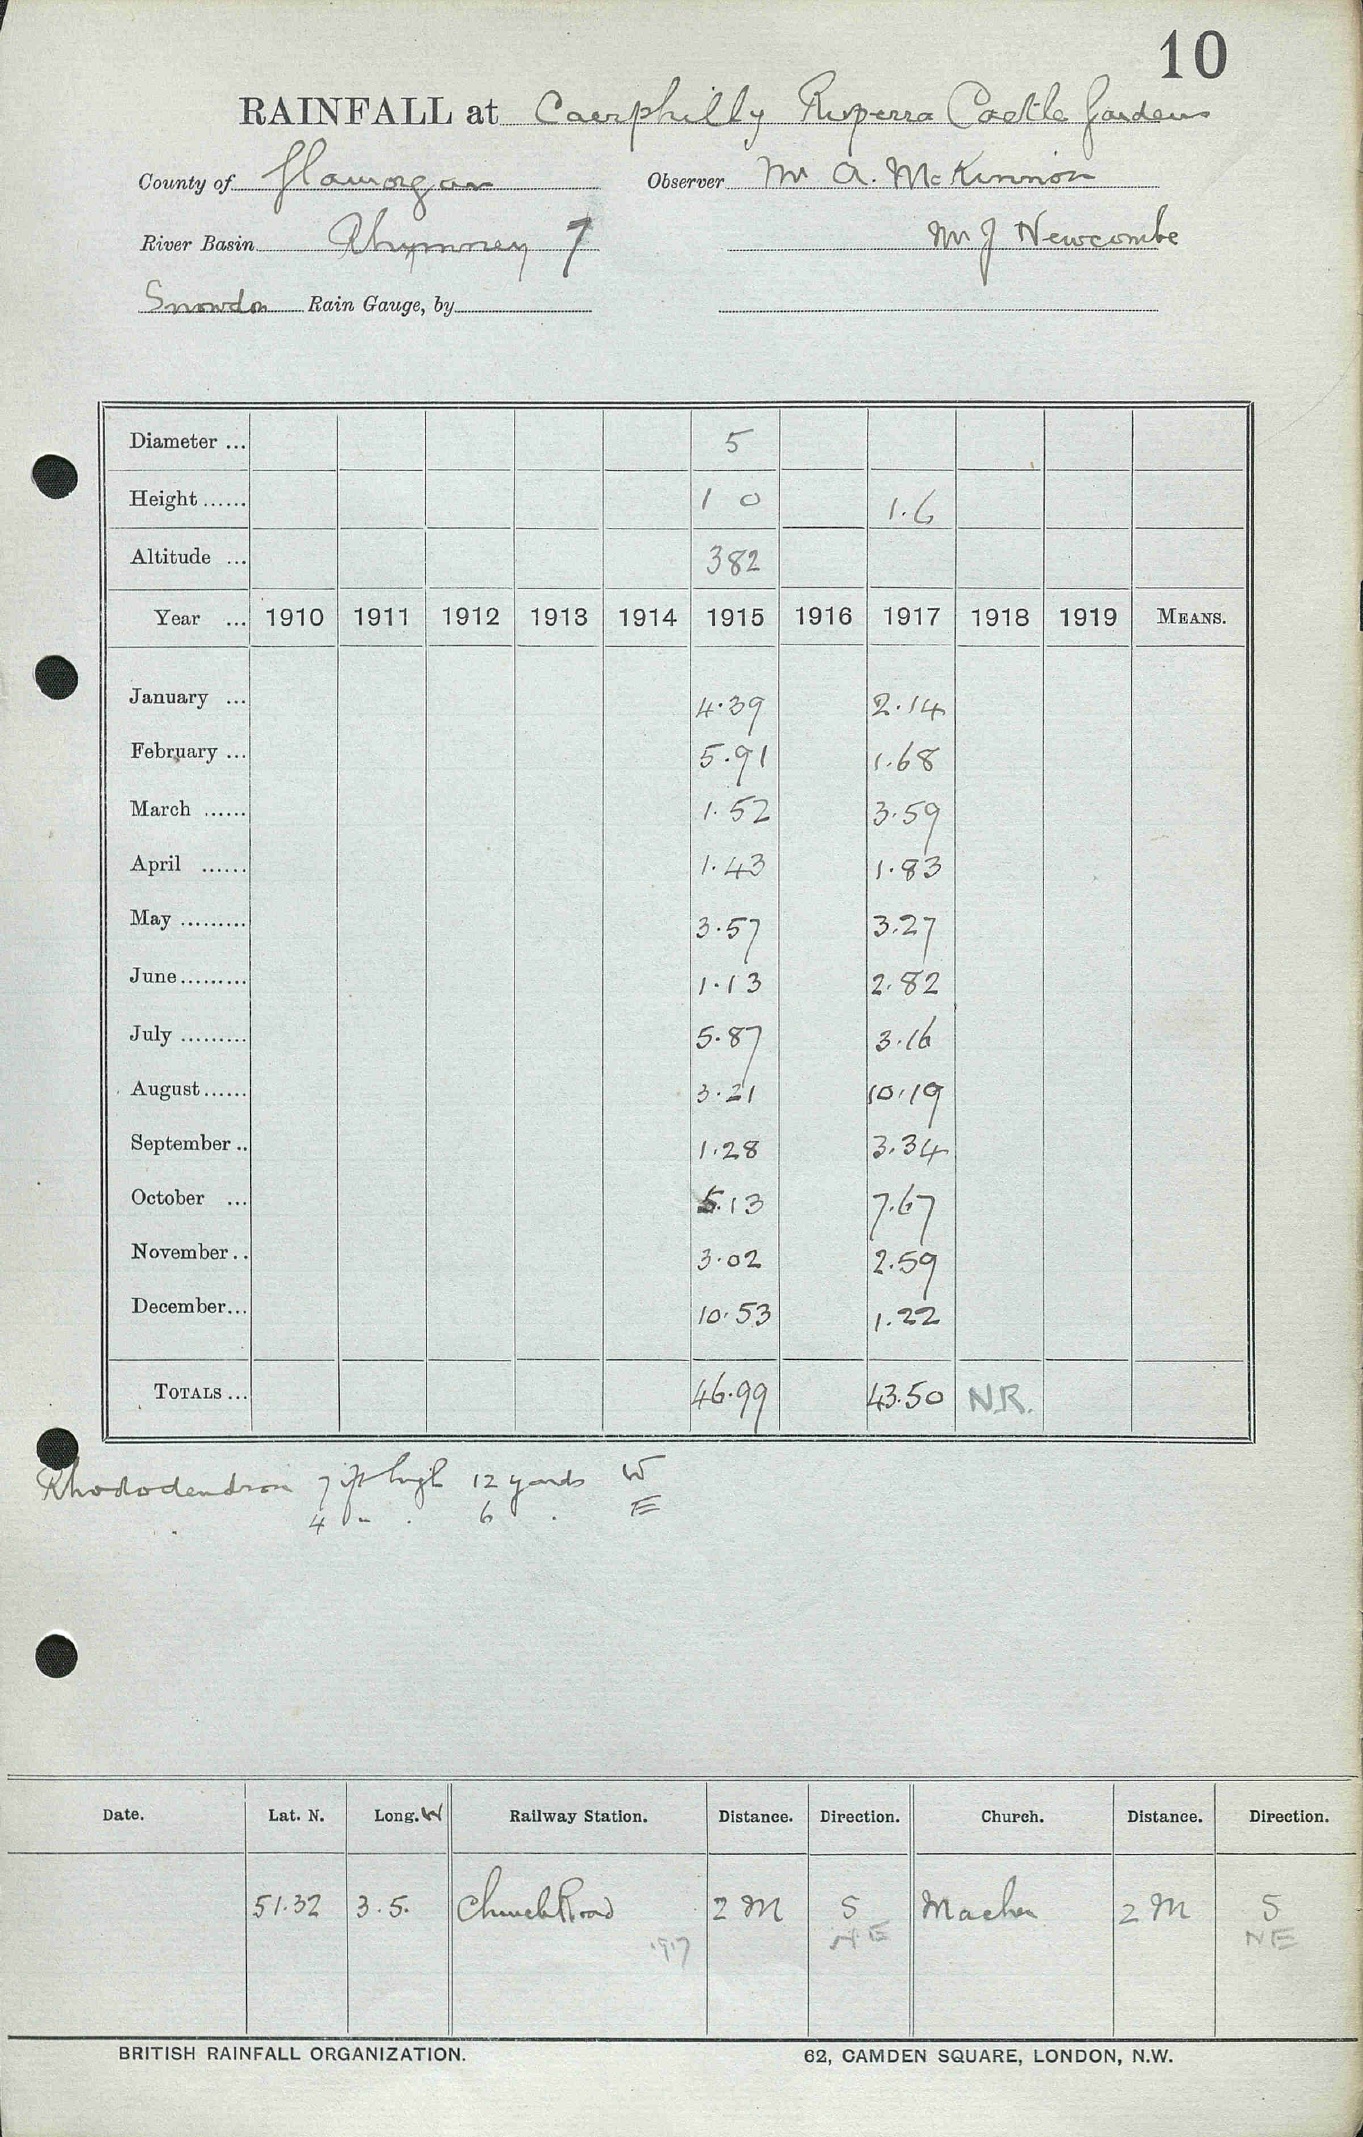 10
RAINFALL at Caerphilly Ruperra Castle Gardens
County of Glamorgan Observer Mr A. McKinnon
River Basin Rhymney 7 Mr J Newcombe
Snowdon Rain Gauge, by
Diameter ... 5
Height ...... 1 0 1.6
Altitude ... 382
Year ... 1910 1911 1912 1913 1914 1915 1916 1917 1918 1919 MEANS.
January ... 4.39 2.14
February ... 5.91 1.68
March ...... 1.52 3.59
April ...... 1.43 1.83
May ......... 3.57 3.27
June ......... 1.13 2.82
July ......... 5.87 3.16
August ...... 3.21 10.19
September .. 1.28 3.34
October ... 5.13 7.67
November .. 3.02 2.59
December ... 10.53 1.22
TOTALS ... 46.99 43.50 N.R.
Rhododendron 7 ft high 12 yards W
4 " . 6 . E
Date. Lat. N. Long. W Railway Station. Distance. Direction. Church. Distance. Direction.
51.32 3.5. Church Road 2 M S Machen 2 M S
1917 NE NE
BRITISH RAINFALL ORGANIZATION. 62, CAMDEN SQUARE, LONDON, N.W.